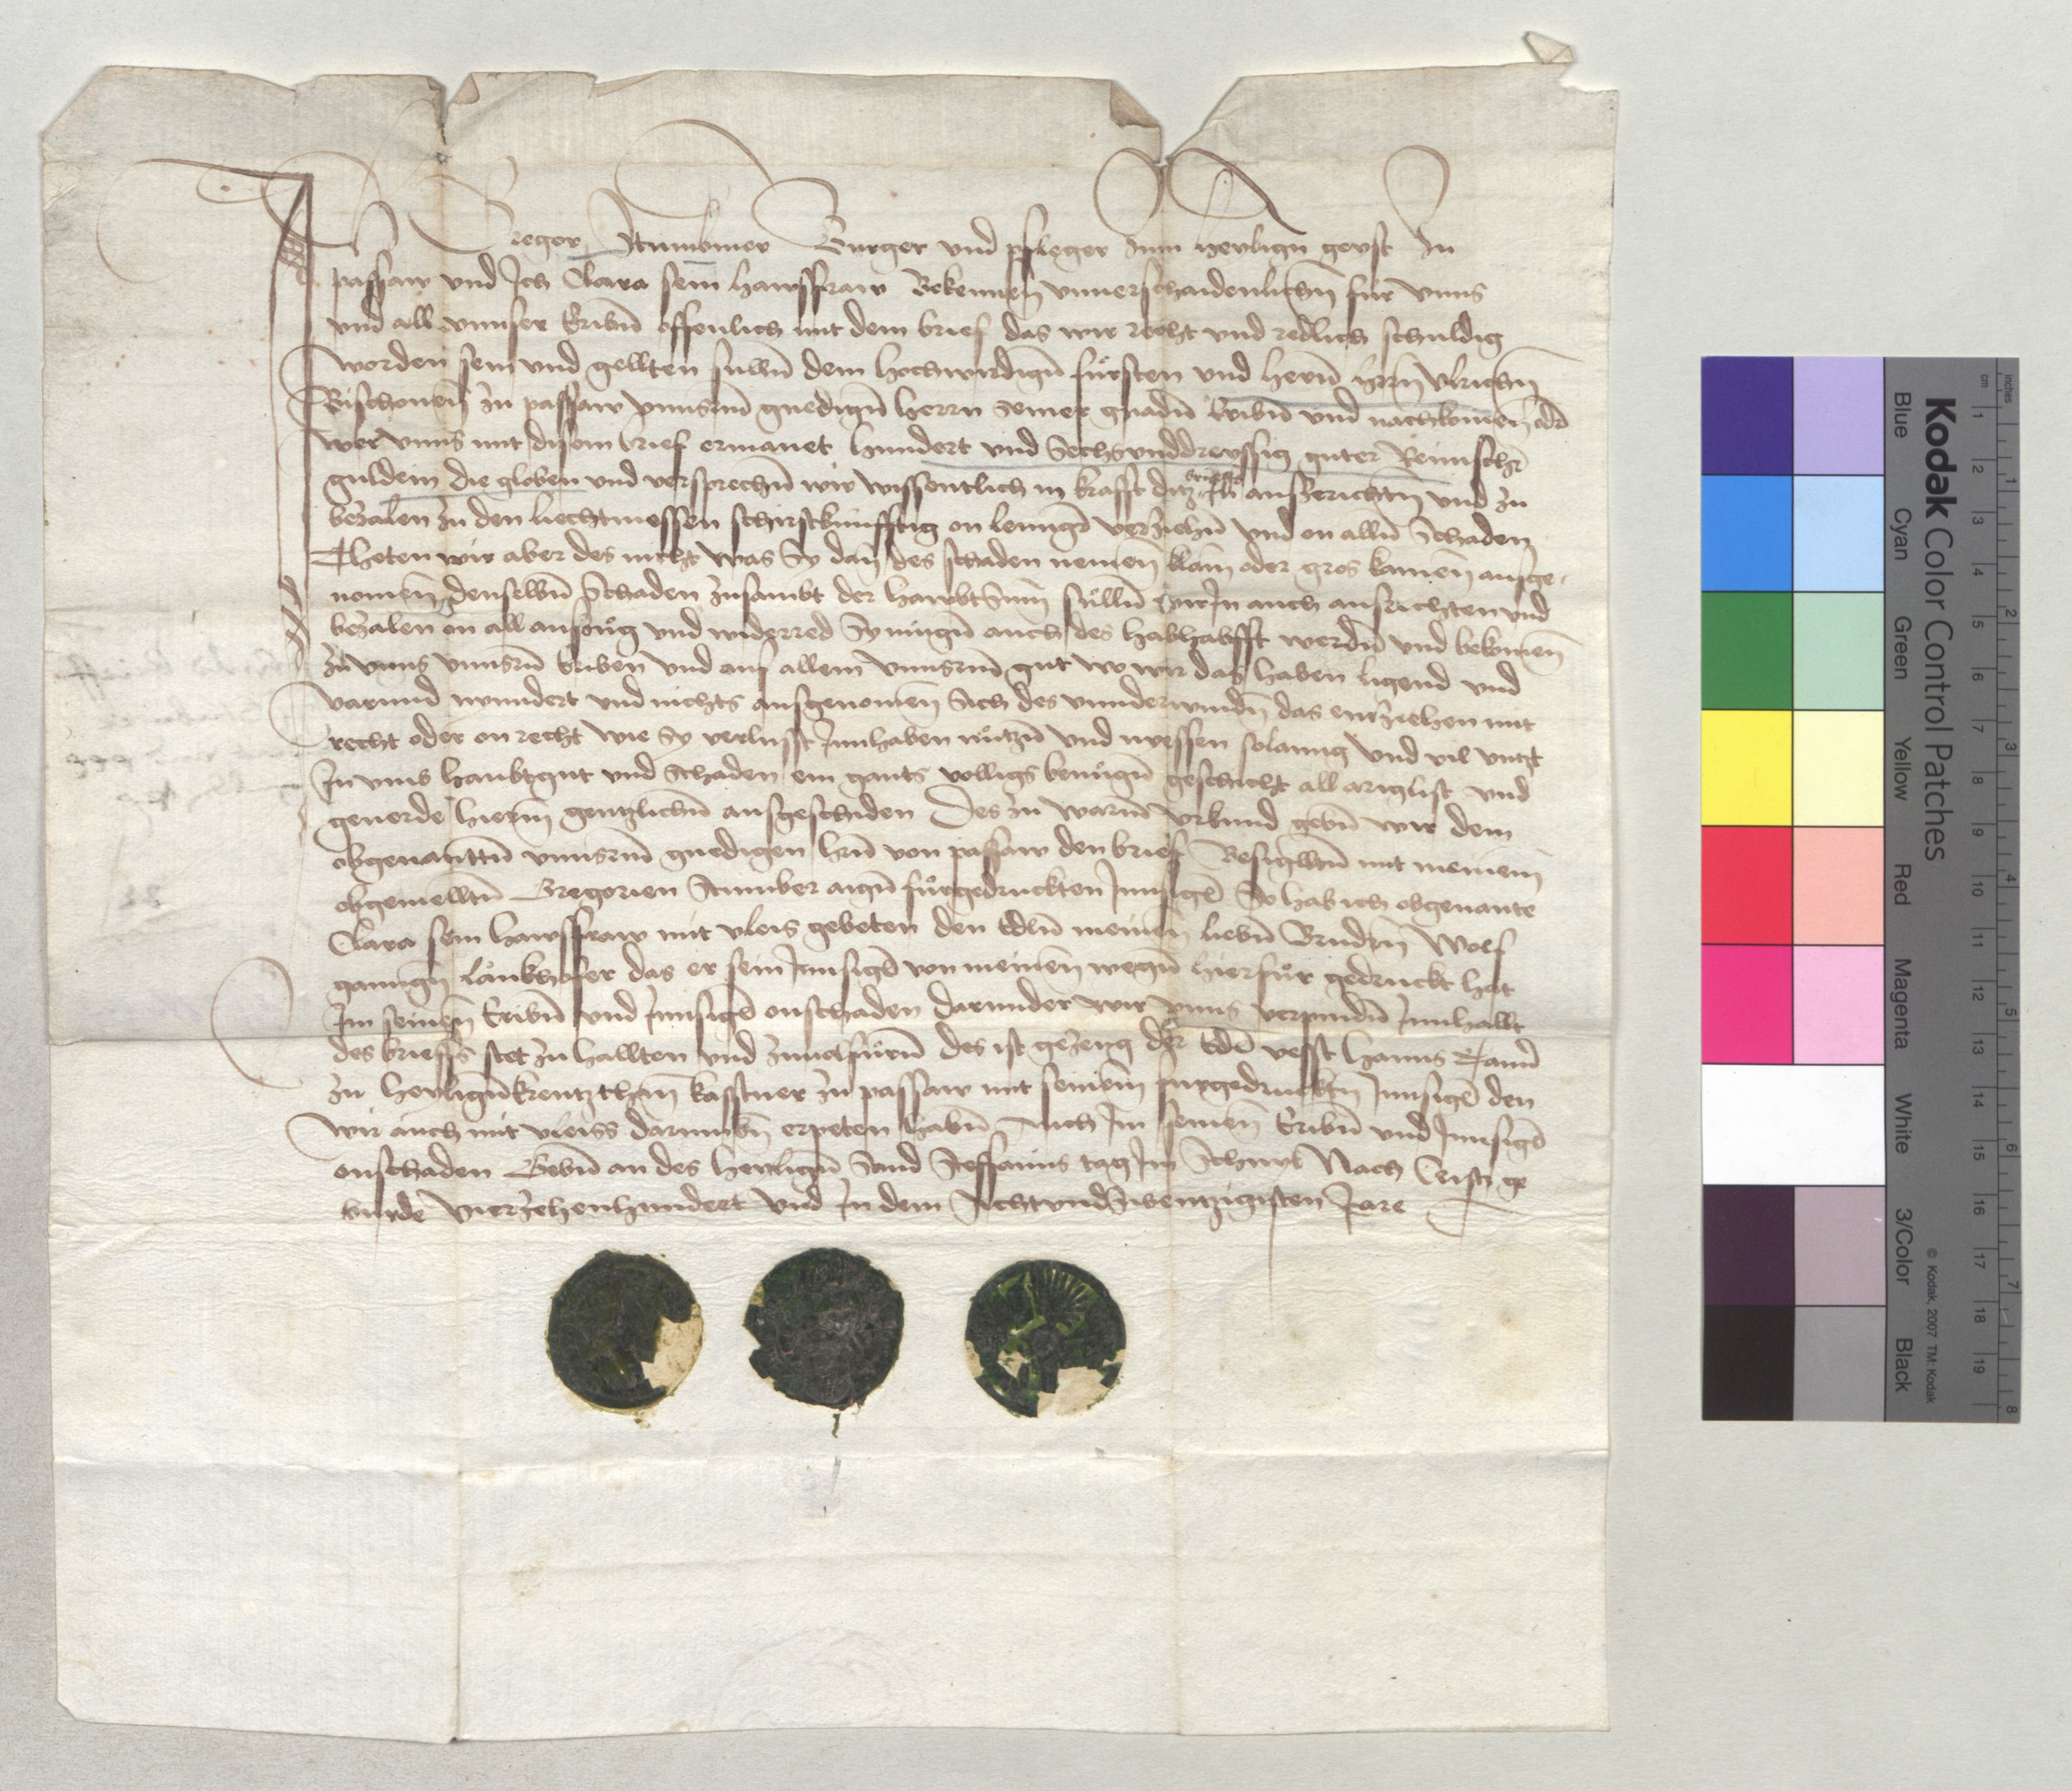 Ich Gregor Stumbmer Burger vnd pfleger zum heyligen geyst zu
passaw vnd Ich Clara sein hawsfraw Bekennen vnuerschaidenlichn für vnns
vnd all vnnser Eribn offenlich mit dem brief das wir recht vnd redlich schuldig
worden sein vnd gellten sulln dem hochwirdign fürsten vnd hern hern Vlrichn
Bischouen zu passaw vnnsrm gnedign herrn seiner gnadn Eribn vnd nachkomen oder
wer vnns mit disem brief ermanet hundert vnd Sechsvnddreyssig guter Reinischer
guldein die globen vnd versprechn wir wissentlich in krafft ditz brieffs In auszerichtn vnd zu
bezalen zu den liechtmessen schirstkünfftig on lenngs verziehn vnd on alln Schaden
Theten wir aber des nicht was Sy dan des schaden nemen klain oder gros kainen ausge-
nomen denselbn Schaden zusambt der hawbtSum sülln wir In auch ausrichten vnd
bezalen on all auszug vnd widerred Sy mügn auch des habhabfft werdn vnd bekomen
zu vnns vnnsrn Eriben vnd auf allem vnnsrm gut wo wir das haben ligend vnd
varund nyndert vnd nichts ausgenomen Sich des vnnderwindn das entziehen mit
recht oder on recht wie Sy verlusst Innhaben nützn vnd nyessen solanng vnd vil vntzt
In vmb haubtgut vnd Schaden ein gants volligs benügn geschicht all arglist vnd
geuerde hierin gentzlichn ausgeschiden Des zu warm vrkund gebn wir dem
obgenanttn vnnsrm gnedigen hrn von passaw den brief Besigelltn mit meinem
obgemelltn Gregorien Stumber aigen fürgedruckten Innsigel So hab ich obgenante
Clara sein hawsfraw mit vleis gebeten den Edln meinen liebn Brudern Wolf
ganngn länkhofer das er sein Innsigel von meinen wegn hierfür gedruckt hat
Im seinen Eribn vnd Innsigel onschaden darunder wir vnns verpindn Innhallt
des brieffs stet zu hallten vnd zuuolfürn des ist gezeug der Edel vesst hanns
zu heyligenkreutz thin kasstner zu passaw mit seinem furgedrucktn Innsigel den
wir auch mit vleiss darumbn erpeten habn auch Im seinen Eribn vnd Innsigel
onschaden Gebn an des heylign Sand Steffanns tag Im Schnyt Nach Cristi ge
burde Vierzehenhundert vnd In dem Achtvndzwentzigisten Jare
Kodak Color Control Patches
Blue Cyan Green Yellow Red Magenta White 3/Color Black
© Kodak, 2007 TM: Kodak
cm 1 2 3 4 5 6 7 8 9 10 11 12 13 14 15 16 17 18 19
inches 1 2 3 4 5 6 7 8